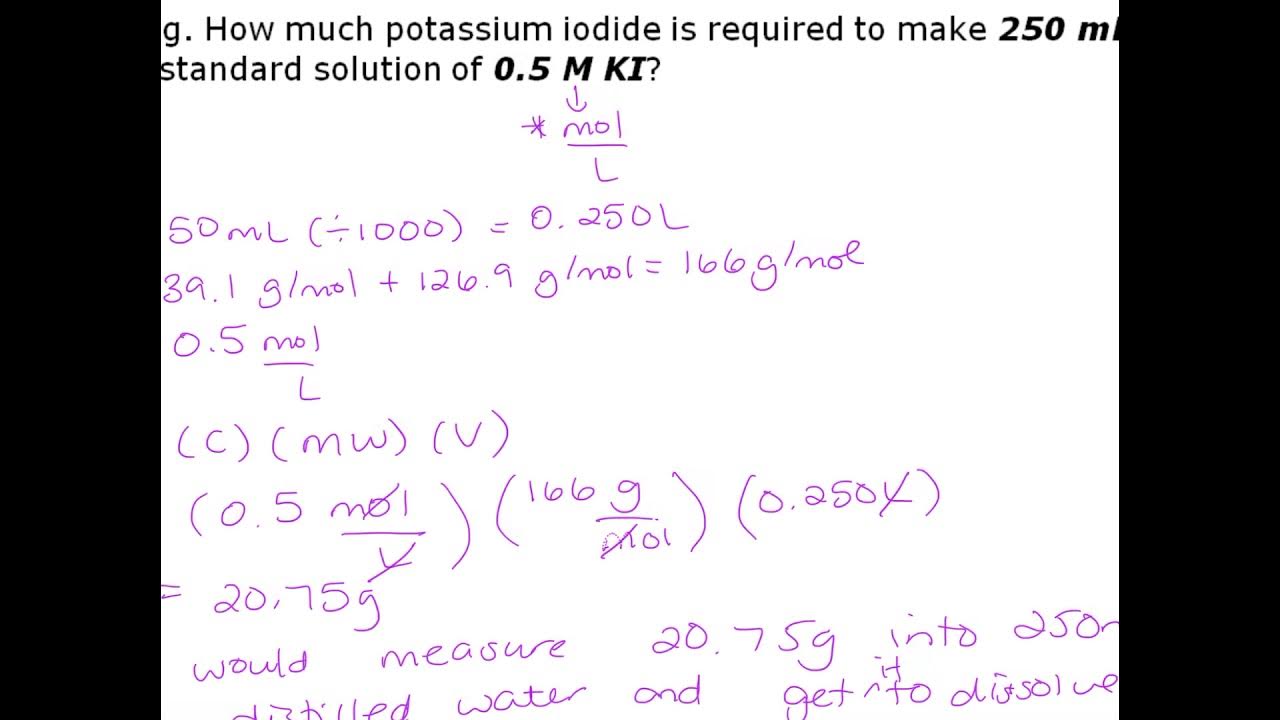 g. How much potassium iodide is required to make 250 ml
standard solution of 0.5 M KI?
↓
* mol
L
50 mL (÷1000) = 0.250L
39.1 g/mol + 126.9 g/mol = 166 g/mol
0.5 mol
L
(C) (MW) (V)
(0.5 mol/L) (166 g/mol) (0.250L)
= 20.75g
would measure 20.75g into 250m
distilled water and get it to dissolve